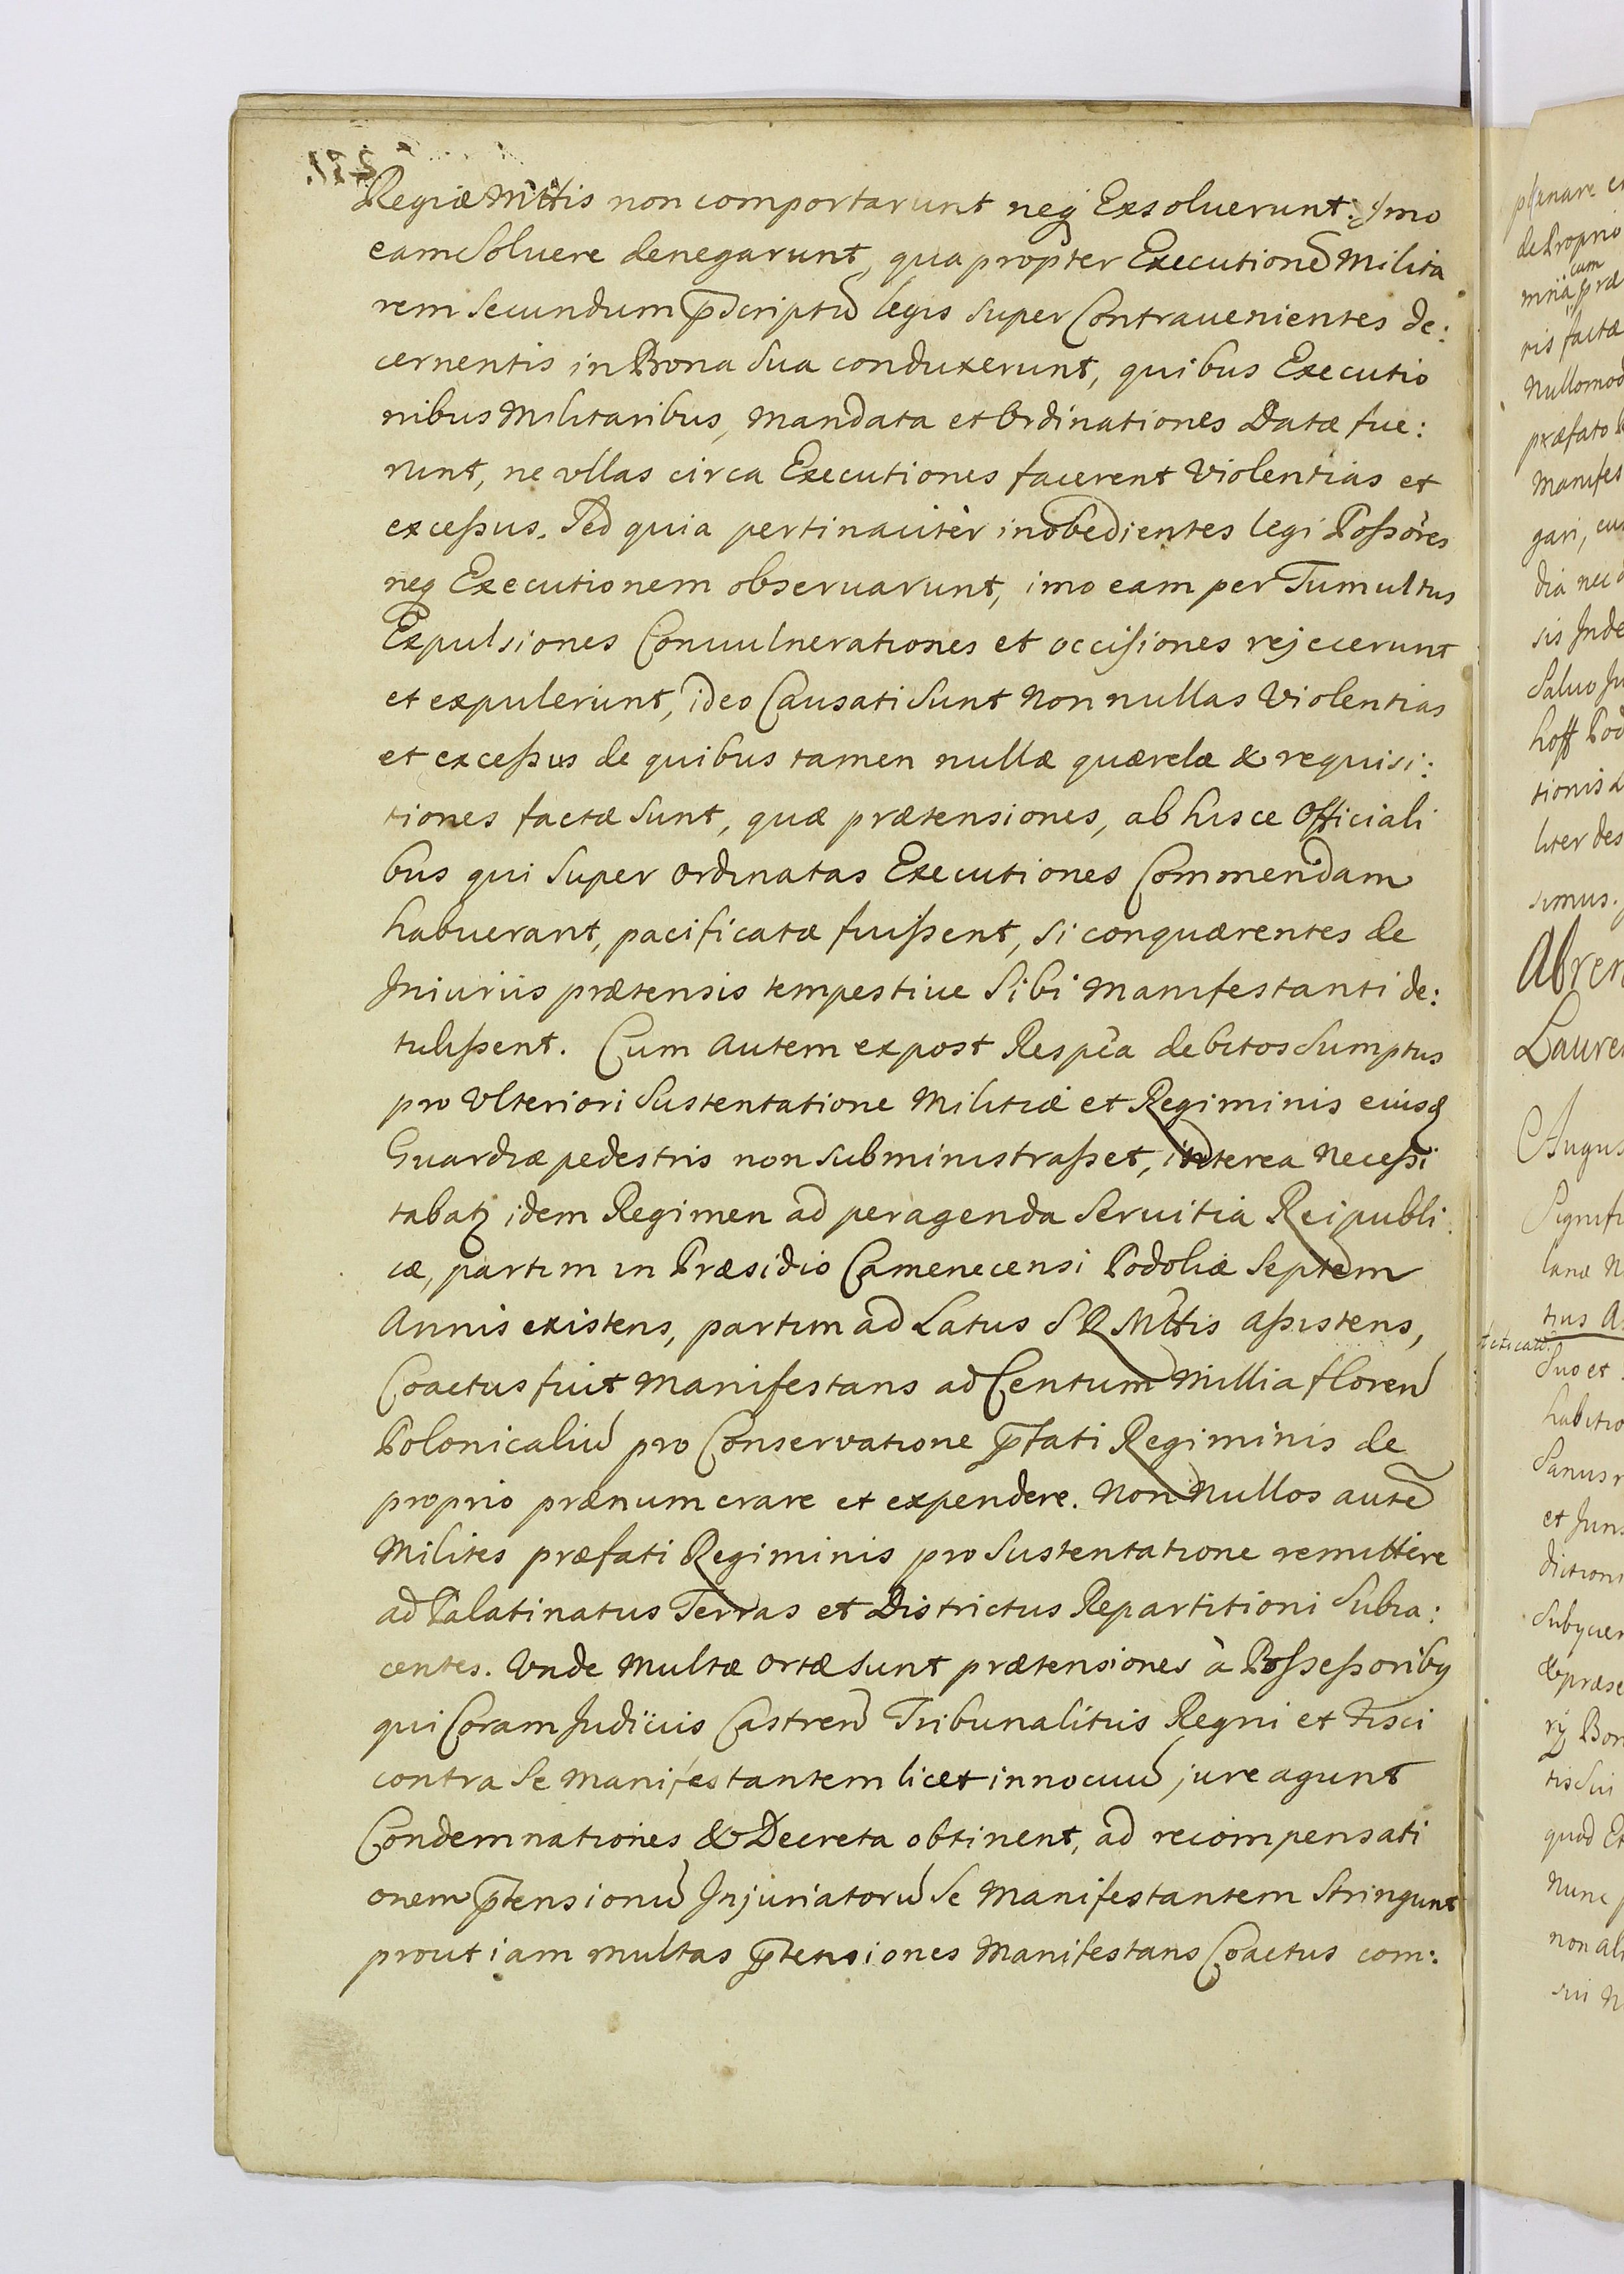 Regiæ Mttis non comportarunt neq Exsoluerunt. Imo
eam Soluere denegarunt, qua propter Executionē Milita
rem Secundum p̄scriptū legis Super Contrauenientes de:
cernentis in Bona Sua conduxerunt, quibus Executio
nibus Militaribus, Mandata et Ordinationes Datæ fue:
runt, ne vllas circa Executiones facerent Violentias et
excessus. Sed quia pertinacitèr inobedientes legi Possores
neq Executionem obseruarunt, imo eam per Tumultus
Expulsiones Conuulnerationes et occisiones rejecerunt
et expulerunt, ideo Causati Sunt Non nullas Violentias
et excessus de quibus tamen nullæ quærelæ & requisi:
tiones factæ Sunt, quæ prætensiones, ab hisce Officiali
bus qui Super ordinatas Executiones Commendam
habuerant, pacificatæ fuissent, Si conquærentes de
Iniuriis prætensis tempestiue Sibi Manifestanti de:
tulissent. Cum autem expost Respca debitos Sumptus
pro Vlteriori Sustentatione Militiæ et Regiminis eiusq
Guardiæ pedestris non Subministrasset, interea Necessi
tabatz idem Regimen ad peragenda Seruitia Reipubli
cæ, partim in Præsidio Camenecensi Podoliæ Septem
Annis existens, partim ad Latus S R Mttis assistens,
Coactus fuit Manifestans ad Centum Millia florenū
Polonicaliū pro Conservatione p̄fati Regiminis de
proprio prænumerare et expendere. Non Nullos autē
Milites præfati Regiminis pro Sustentatione remittere
ad Palatinatus Terras et Districtus Repartitioni Subia:
centes. Vnde Multæ ortæ Sunt prætensiones à Possessoribq
qui Coram Judiciis Castren Tribunalitiis Regni et Fisci
contra Se Manifestantem licet innocuū, jure agunt
Condemnationes & Decreta obtinent, ad recompensati
onem p̄tensionū Injuriatorū Se Manifestantem Stringunt
prout iam multas p̄tensiones Manifestans Coactus com: